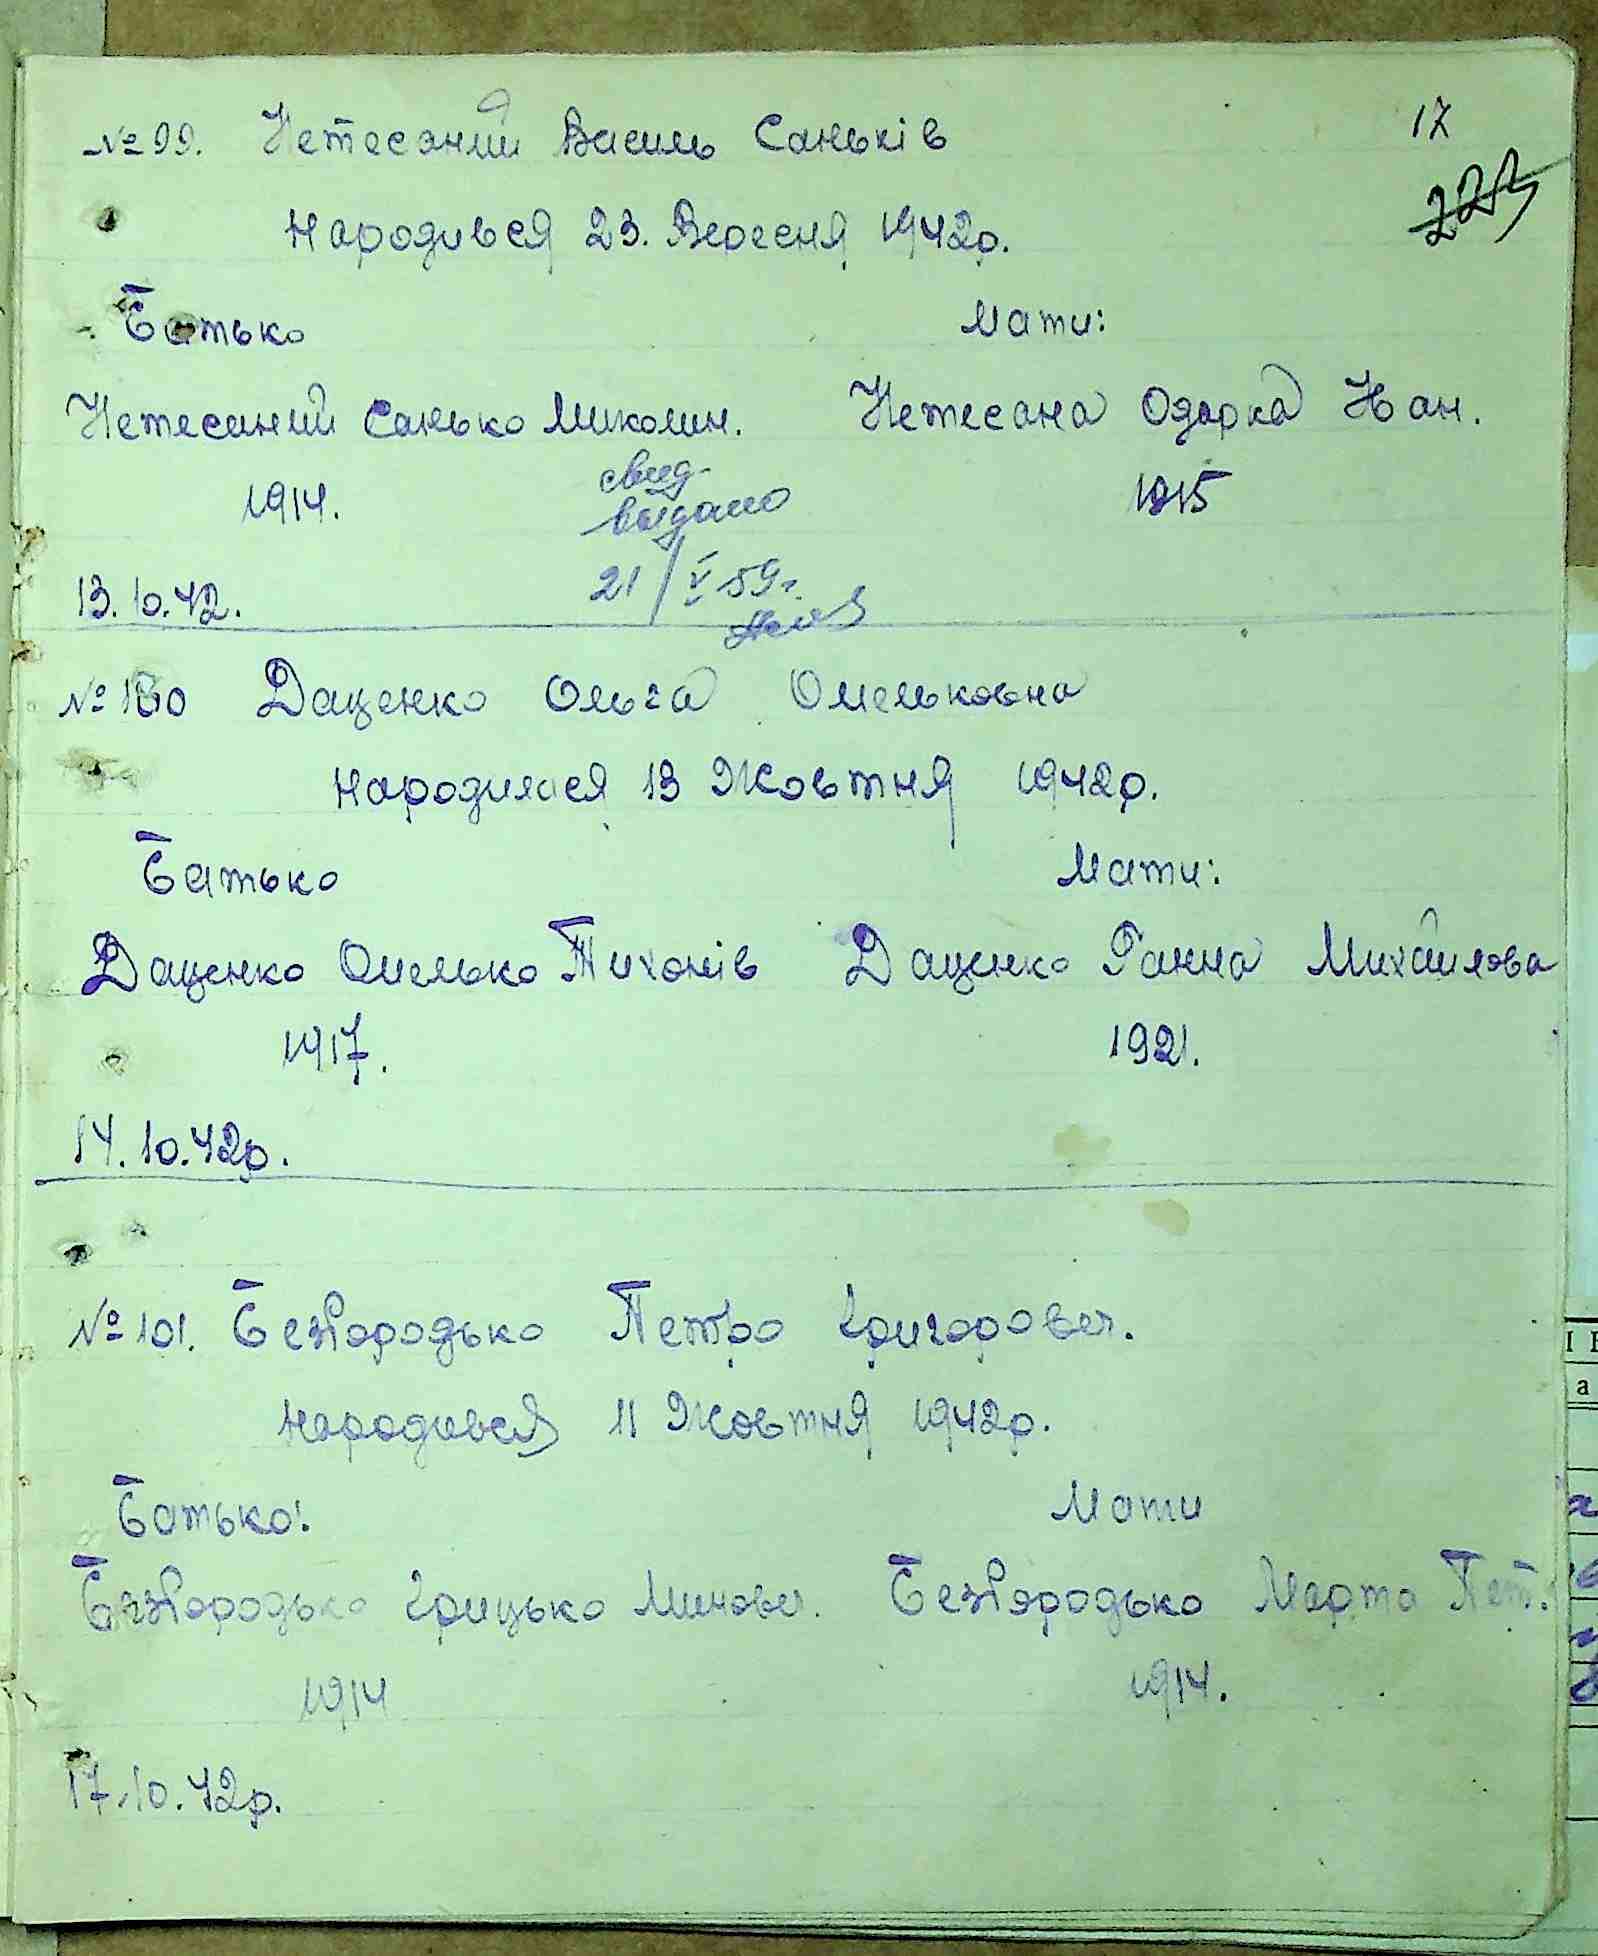 № 99. Нетесаний Василь Саньків
17
223
Народився 23. Вересня 1942р.
Батько Мати:
Нетесаний Санько Миколин. Нетесана Одарка Іван.
1914. 1915
свид.
выдано
21/V 59г.
13.10.42.
№ 100 Даценко Ольга Омельковна
Народилася 13 Жовтня 1942р.
Батько Мати:
Даценко Омелько Тихонів Даценко Ганна Михайлова
1917. 1921.
14.10.42р.
№ 101. Безбородько Петро Григорович.
Народився 11 Жовтня 1942р.
Батько: Мати
Безбородько Грицько Минович. Безбородько Марта Пет.
1914 1914.
17.10.42р.